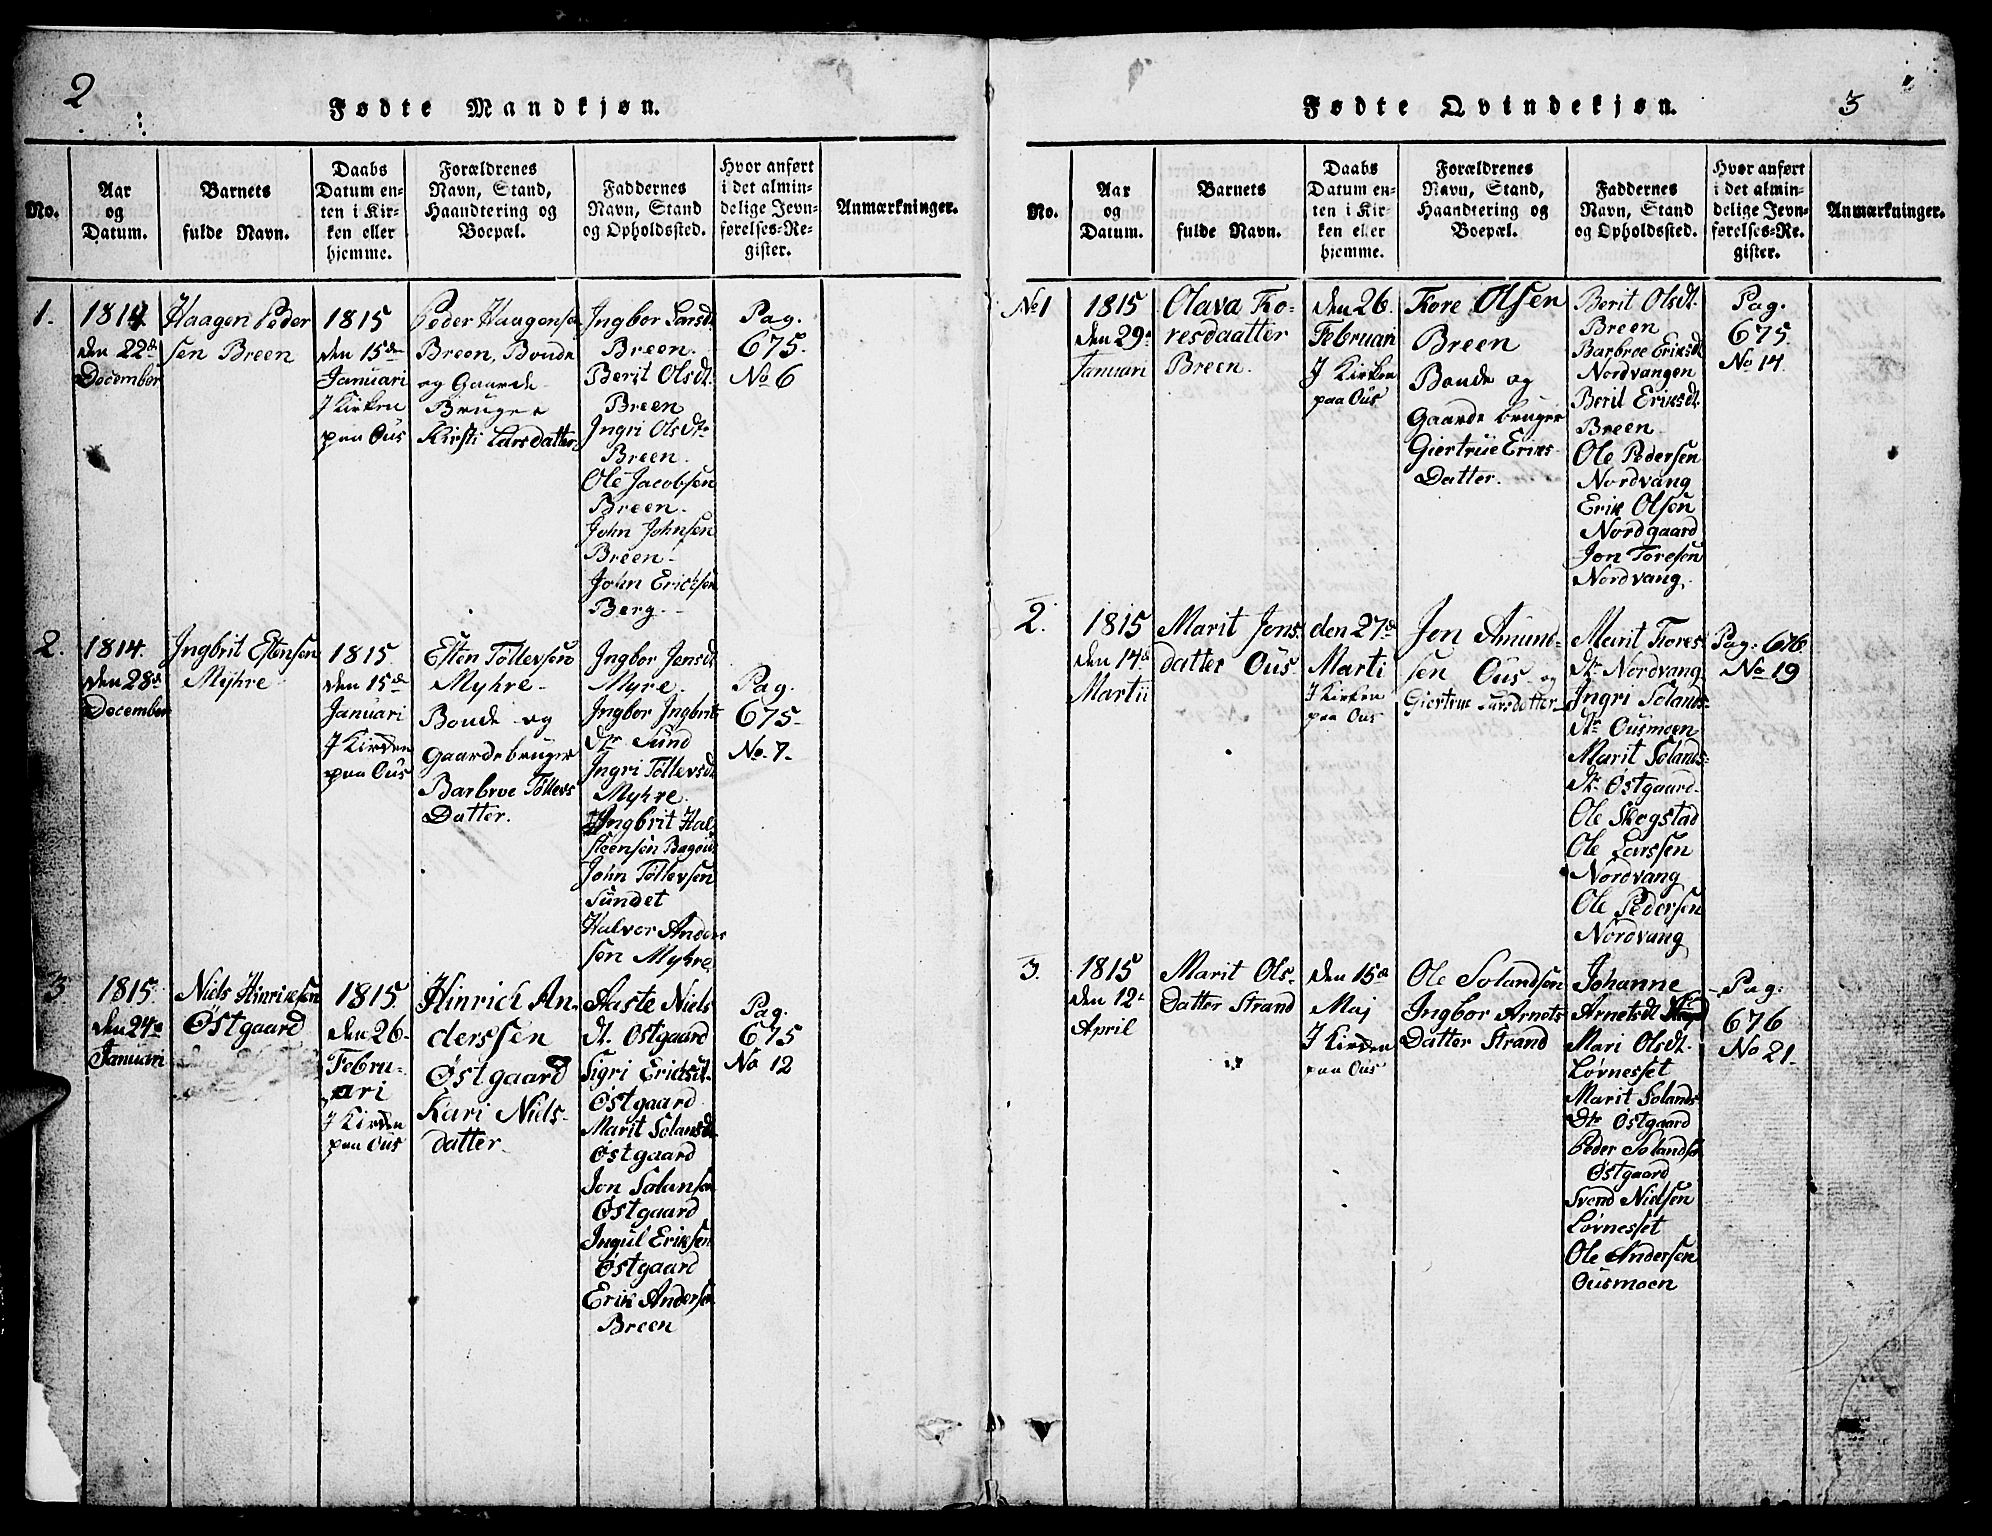 2
Fødte Mandkjøn.
No.
Aar
og
Datum.
Barnets
fulde Navn.
Daabs
Datum en-
ten i Kir-
ken eller
hjemme.
Forældrenes
Navn, Stand,
Haandtering og
Boepæl.
Faddernes
Navn, Stand
og Opholdssted.
Hvor anført
i det almin-
delige Jevn-
førelses-Re-
gister.
Anmærkninger.
1.
1814
den 22de
December
Haagen Peder
sen Breen
1815
den 15de
Januari
J Kirken
paa Ous
Peder Haagensen
Breen, Bonde
og Gaards-
Bruger
Kirsti Larsdatter
Ingbor Larsdt
Breen.
Berit Olsdt.
Breen
Ingri Olsdtr
Breen.
Ole Jacobsen
Breen.
John Johnsen
Breen.
John Erichsen
Berg.
Pag.
675.
No 6
2.
1814.
den 28de
December
Ingbrit Estensen
Myhre
1815.
den 15de
Januari
J Kirken
paa Ous
Esten Tollevsen
Myhre.
Bonde og
Gaardebruger
Barbroe Tollevs
Datter.
Ingbor Jensdt
Myre.
Ingbor Ingbrit
dtr Sund
Ingri Tollevsdt
Myhre.
Ingbrit Hal
steensen
John Tollevsen
Sundet
Halvor Anders
sen Myhre
Pag.
675.
No. 7.
3
1815.
den 24de
Januari
Niels Hinrichsen
Østgaard
1815
den 26
Febru-
ari
J Kirken
paa Ous
Hinrich An
derssen
Østgaard
Kari Niels-
datter
Aaste Niels
dt. Østgaard
Sigri Ericsdt.
Østgaard
Marit Solansdt
Østgaard
Jon Solansen
Østgaard
Ingul Eriksen
Østgaard
Erik Andersen
Breen
Pag.
675
No 12
3
Fødte Qvindekjøn.
No.
Aar
og
Datum.
Barnets
fulde Navn.
Daabs
Datum en-
ten i Kir-
ken eller
hjemme.
Forældrenes
Navn, Stand,
Haandtering og
Boepæl.
Faddernes
Navn, Stand
og Opholdssted.
Hvor anført
i det almin-
delige Jevn-
førelses-Re-
gister.
Anmærkninger.
No 1
1815
den 29de
Januari
Olava To-
resdaatter
Breen.
den 26.
Februari
J Kirken
paa Ous
Tore Olsen
Breen
Bonde og
Gaarde bruger
Giertrue Eriks-
Datter.
Berit Olsdt.
Breen
Barbroe Eriksdt
Nordvangen
Beril Eriksdt
Breen.
Ole Pedersen
Nordvang
Erik Olsen
Nordgaard
Jon Toresen
Nordvang.
Pag.
675.
No 14.
2.
1815
den 14de
Martii
Marit Jons
datter Ous
den 27de
Marti
J Kirken
paa Ous
Jon Amund-
sen Ous og
Giertrue Larsdatter
Marit Tores
dtr Nordvang
Ingri Solands-
dtr Ousmoen
Marit Solands-
dtr Østgaard.
Ole Skogstad
Ole Larssen
Nordvang
Ole Pedersen
Nordvang
Pag: 676
No 19
3.
1815
den 12te
April
Marit Ols-
datter Strand
den 15de
Maj
J Kirken
paa Ous
Ole Solandsen
Ingbor Arnets
Datter Strand
Johanne
Arnetsdt
Mari Olsdt.
Løvnesset
Marit Solands-
dtr Østgaard
Peder Solandsen
Østgaard
Svend Nielsen
Løvnesset
Ole Andersen
Ousmoen
Pag:
676
No 21.